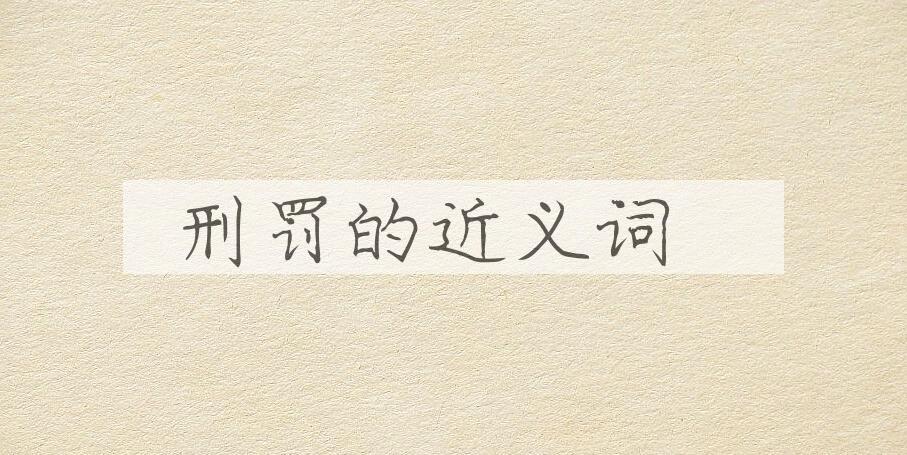 刑罚的近义词